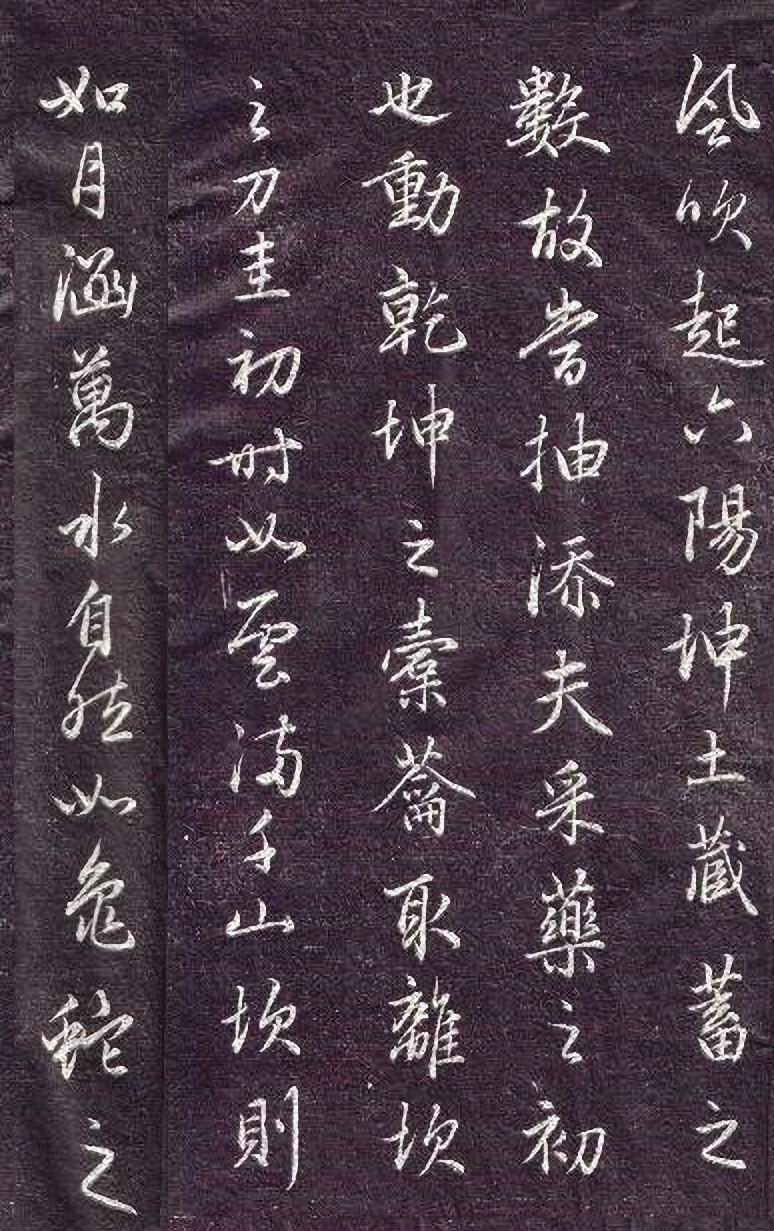 風吹起六陽坤土藏蓄之
數故嘗抽添夫采藥之初
也動乾坤之橐籥取離坎
之刀圭初時如雲滿千山坎則
如月涵萬水自然如龜蛇之